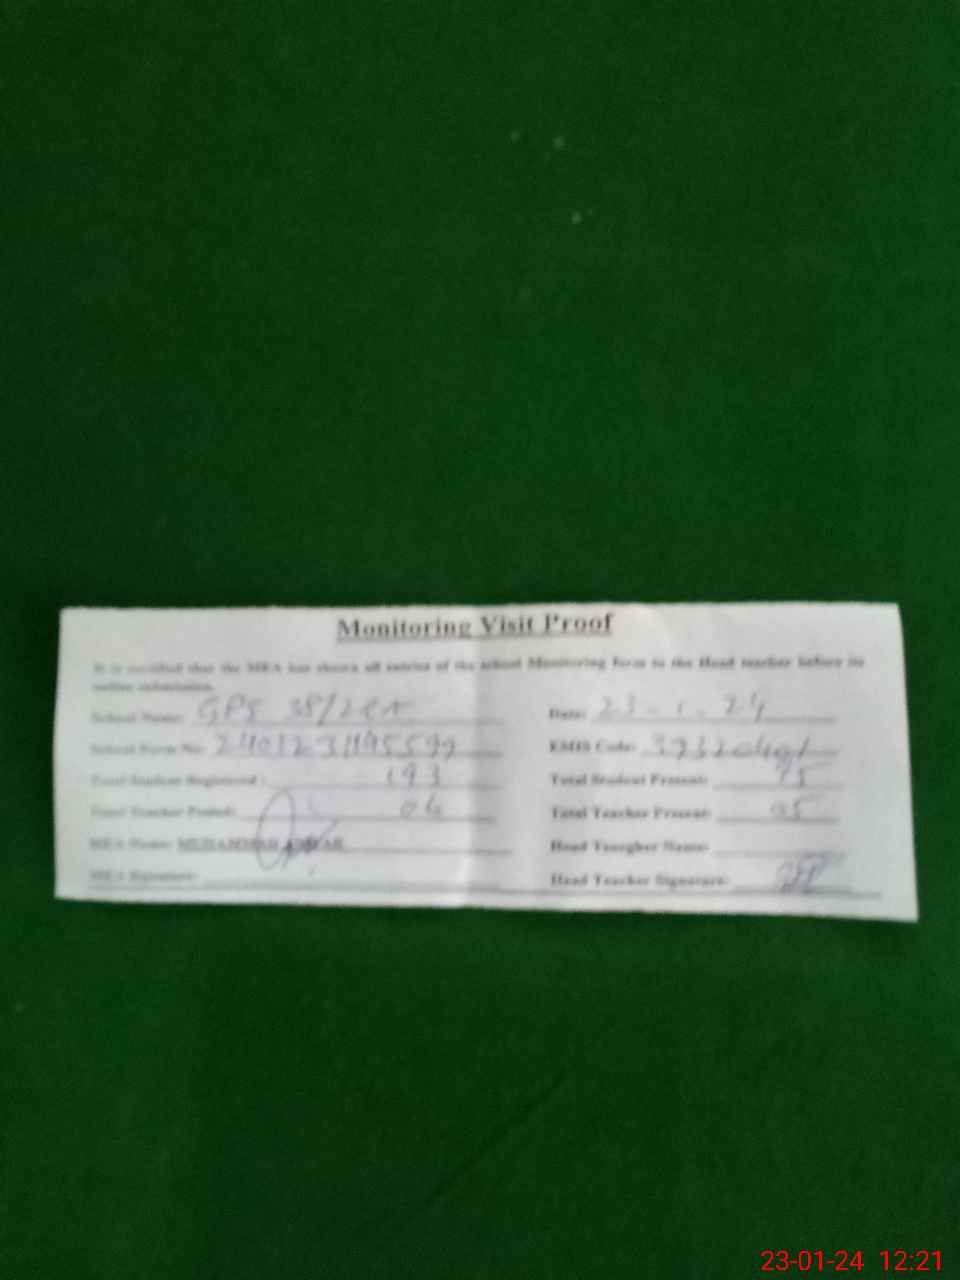 Monitoring Visit Proof
It is certified that the MEA has shown all entries of the school Monitoring form to the Head teacher before its
online submission.
School Name: GPS 38/2RA Date: 23-1-24
School Form No: EMIS Code:
Total Student Registered: 193 Total Student Present: 95
Total Teacher Posted: 06 Total Teacher Present: 05
MEA Name: MUHAMMAD Head Teacher Name:
MEA Signature: Head Teacher Signature:
23-01-24 12:21